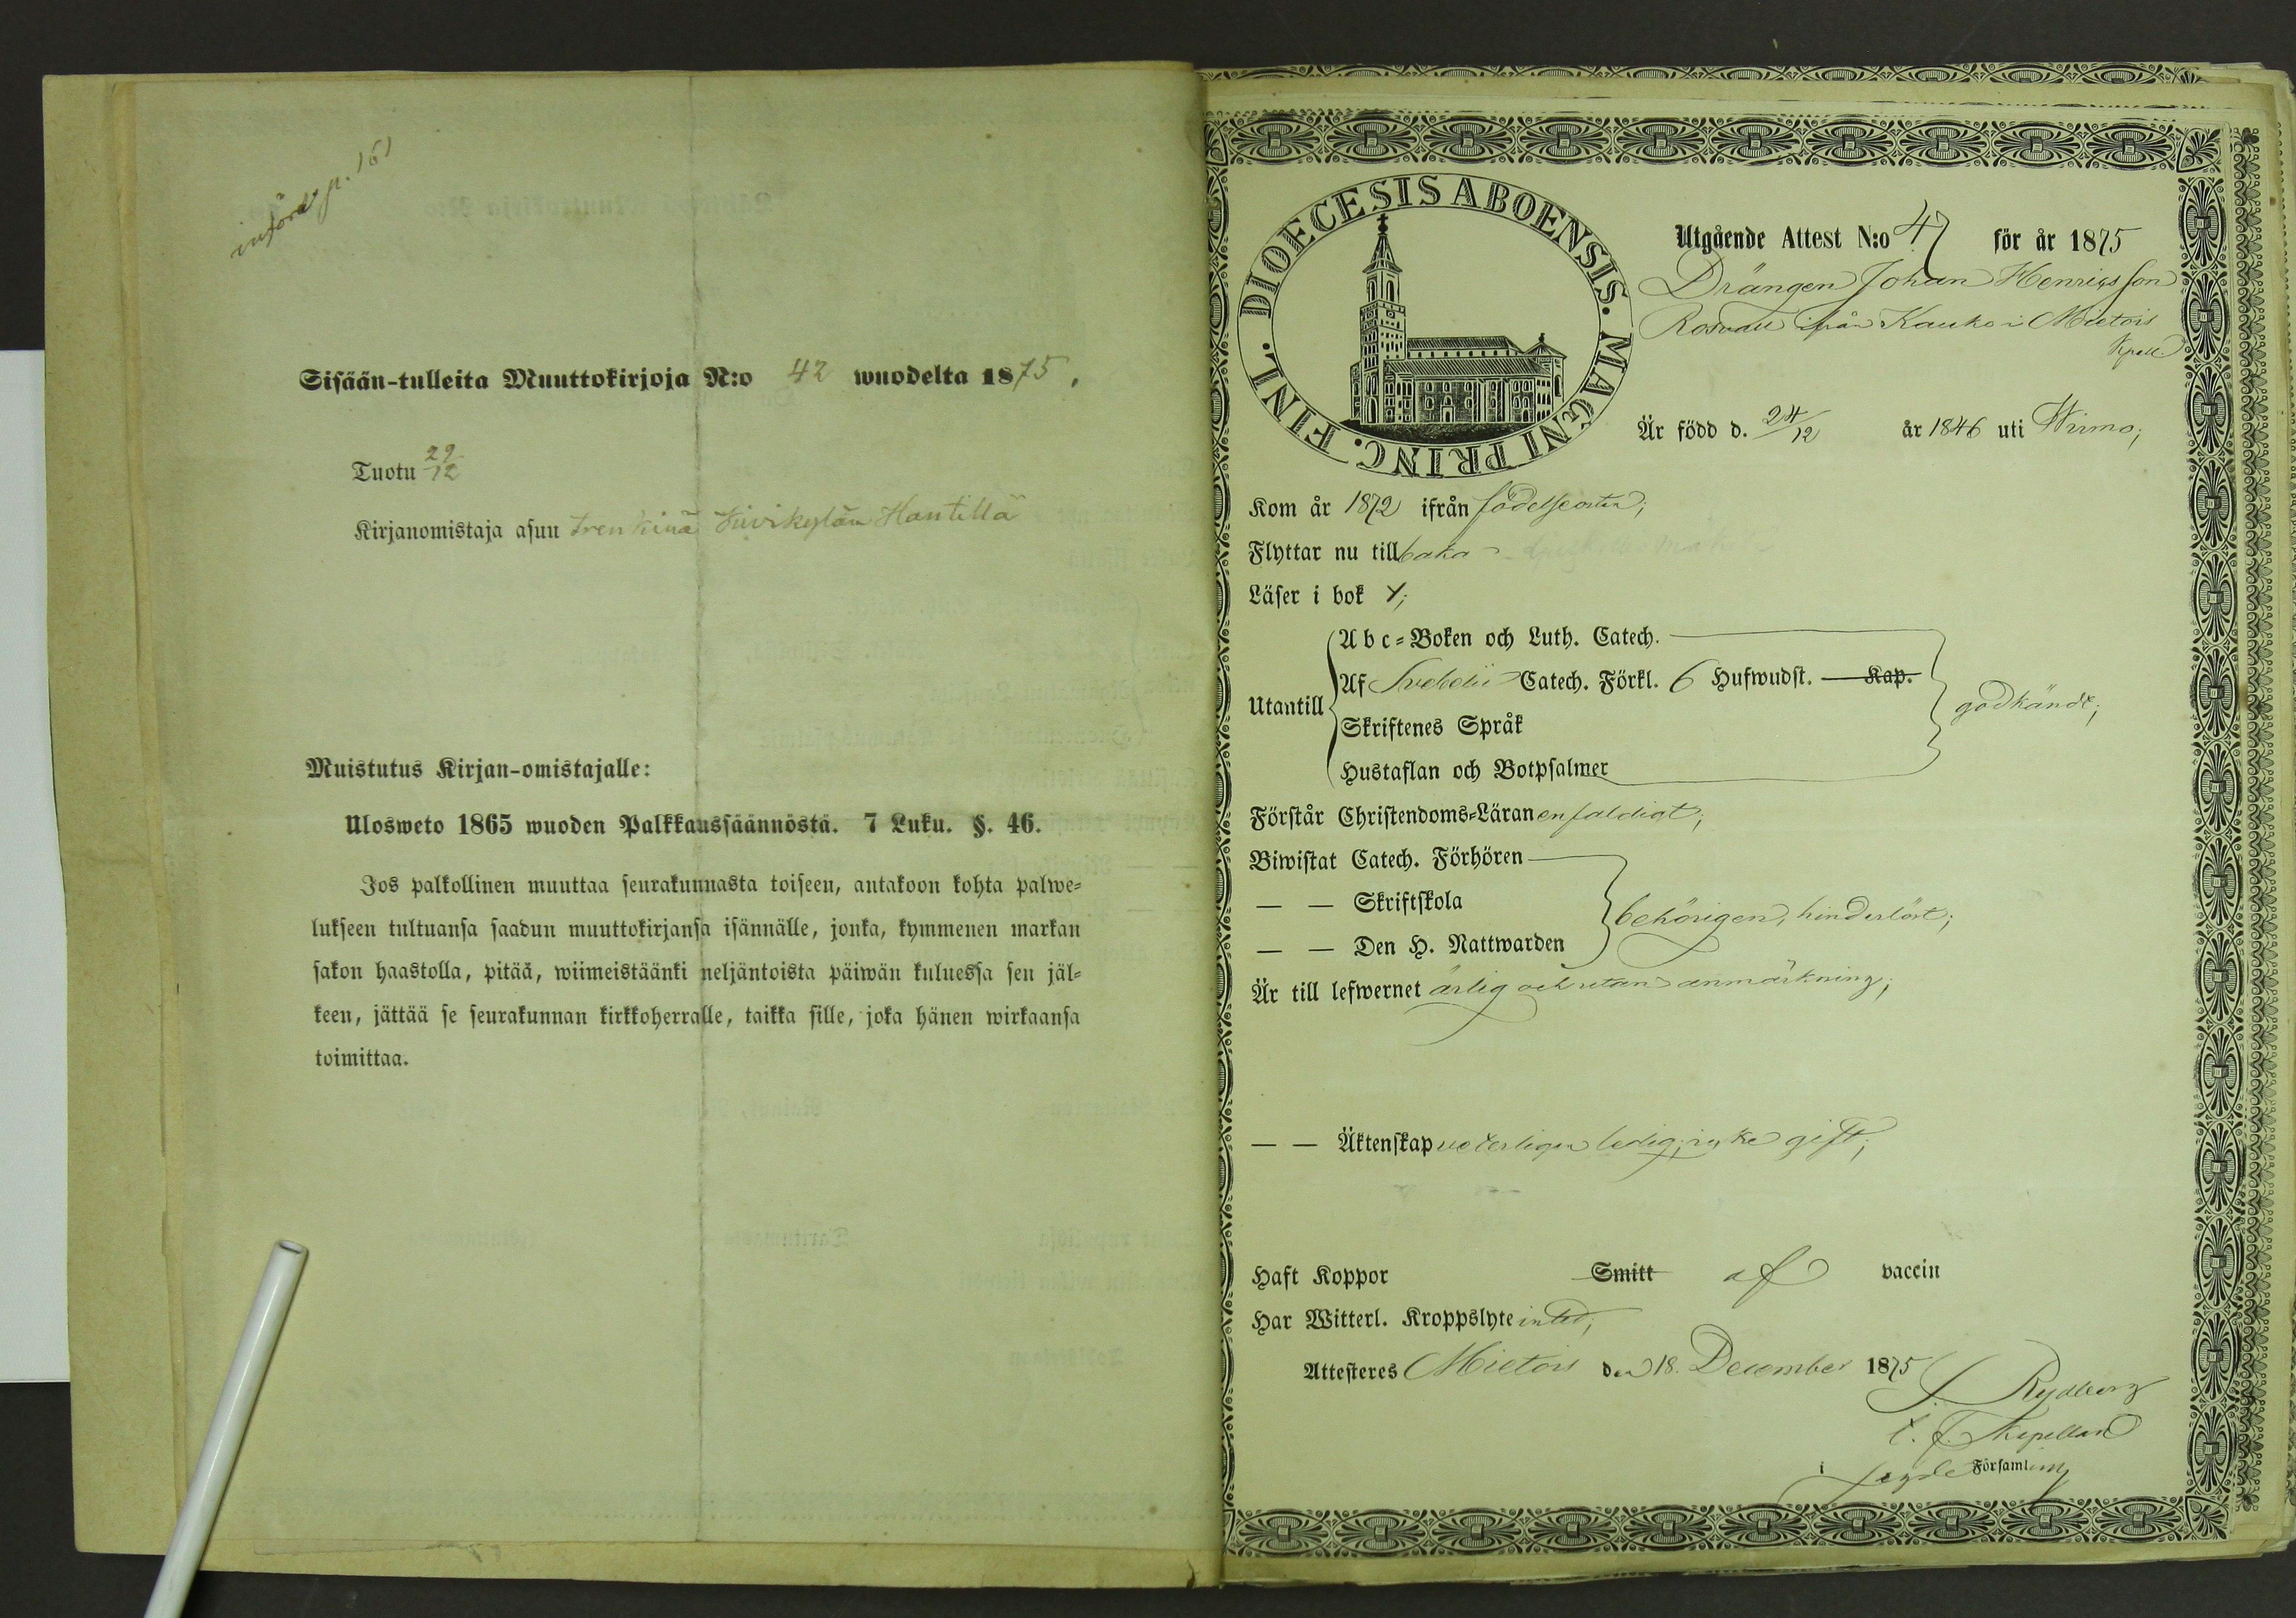 införd p. 161
Sisään-tulleita Muuttokirjoja N:o 42 wuodelta 1875.
Tuotu 29/12
Kirjanomistaja asuu trenkinä Kivikylän Hantillä
Muistutus Kirjan-omistajalle:
Ulosweto 1865 wuoden Palkkaussäännöstä. 7 Luku. §. 46.
Jos palkollinen muuttaa seurakunnasta toiseen, antakoon kohta palwe-
lukseen tultuansa saadun muuttokirjansa isännälle, jonka, kymmenen markan
sakon haastolla, pitää, wiimeistäänki neljäntoista päiwän kuluessa sen jäl-
keen, jättää se seurakunnan kirkkoherralle, taikka sille, joka hänen wirkaansa
toimittaa.
DIOECESIS ABOENSIS. MAGNI PRINC. FINL.
Utgående Attest N:o 47 för år 1875
Drängen Johan Henrigsson
ifrån Kauko i Mietois
Kpell.
Är född d. 24/12 år 1846 uti Wirmo;
Kom år 1872 ifrån födelseorten;
Flyttar nu tillbaka
Läser i bok
Abc-Boken och Luth. Catech.
Af Svebelii Catech. Förkl. 6 Hufwudst. Kap.
Utantill godkändt;
Skriftenes Språk
Hustaflan och Botpsalmer
Förstår Christendoms-Läran enfaldigt;
Biwistat Catech. Förhören
— — Skriftskola
behörigen, hinderlöst;
— — Den H. Nattwarden
Är till lefwernet ärlig och utan anmärkning;
— — Äktenskap veterligen ledig, icke gift;
Haft Koppor Smitt af vaccin
Har Witterl. Kroppslyte intet;
Attesteres Mietois den 18. December 1875
J. Rydberg
t. f. Kapellan
i Församling